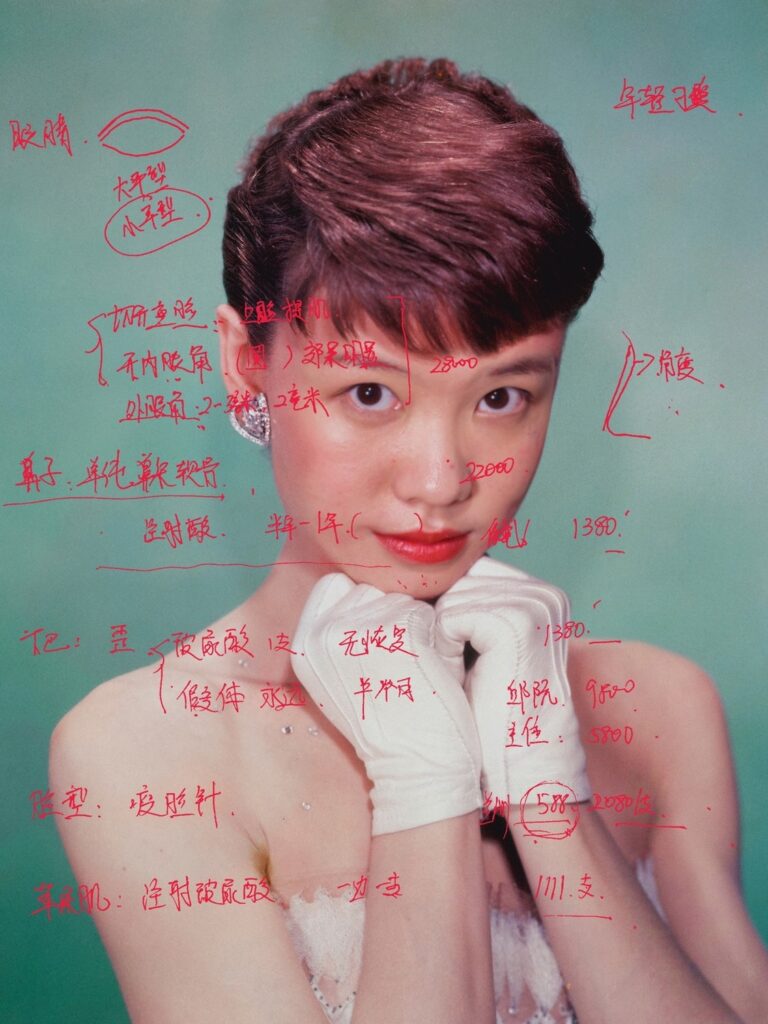 年轻
眼睛.
大平型
小平型.
切开重睑: 上睑提肌
开内眼角. (圆) 效果明显 28000
外眼角: 2-3毫米 2毫米
→角度.
鼻子: 单纯鼻尖软骨. 22000.
注射酸. 半年-1年. ( ) 1380.
下巴: 歪 玻尿酸 1支 无恢复 1380.
假体 永远. 半个月. 邱院. 9800
主任: 5800
脸型: 瘦脸针. 588 2080/支.
苹果肌: 注射玻尿酸 一边一支 1111.支